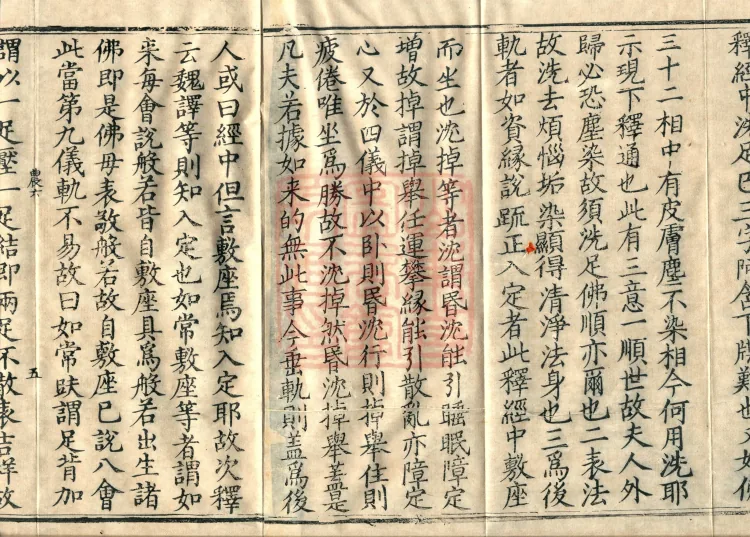 釋經中洗足已三字障舍下牒難也
三十二相中有皮膚塵不染相今何用洗耶
示現下釋通也此有三意一順世故夫人外
歸必恐塵染故須洗足佛順亦爾也二表法
故洗去煩惱垢染顯得清淨法身也三為後
軌者如資緣說䟽正入定者此釋經中敷座
而坐也沈掉等者沈謂昏沈能引睡眠障定
增故掉謂掉舉任運攀緣能引散亂亦障定
心又於四儀中以卧則昏沈行則掉舉住則
疲倦唯坐為勝故不沈掉然昏沈掉舉蓋是
凡夫若據如来的無此事今垂軌則蓋為後
人或曰經中但言敷座焉知入定耶故次釋
云魏譯等則知入定也如常敷座等者謂如
来每會說般若皆自敷座具為般若出生諸
佛即是佛母表敬般若故自敷座已說八會
此當第九儀軌不易故曰如常趺謂足背加
農六
五
謂以一足壓一足結即兩足不散表吉祥故